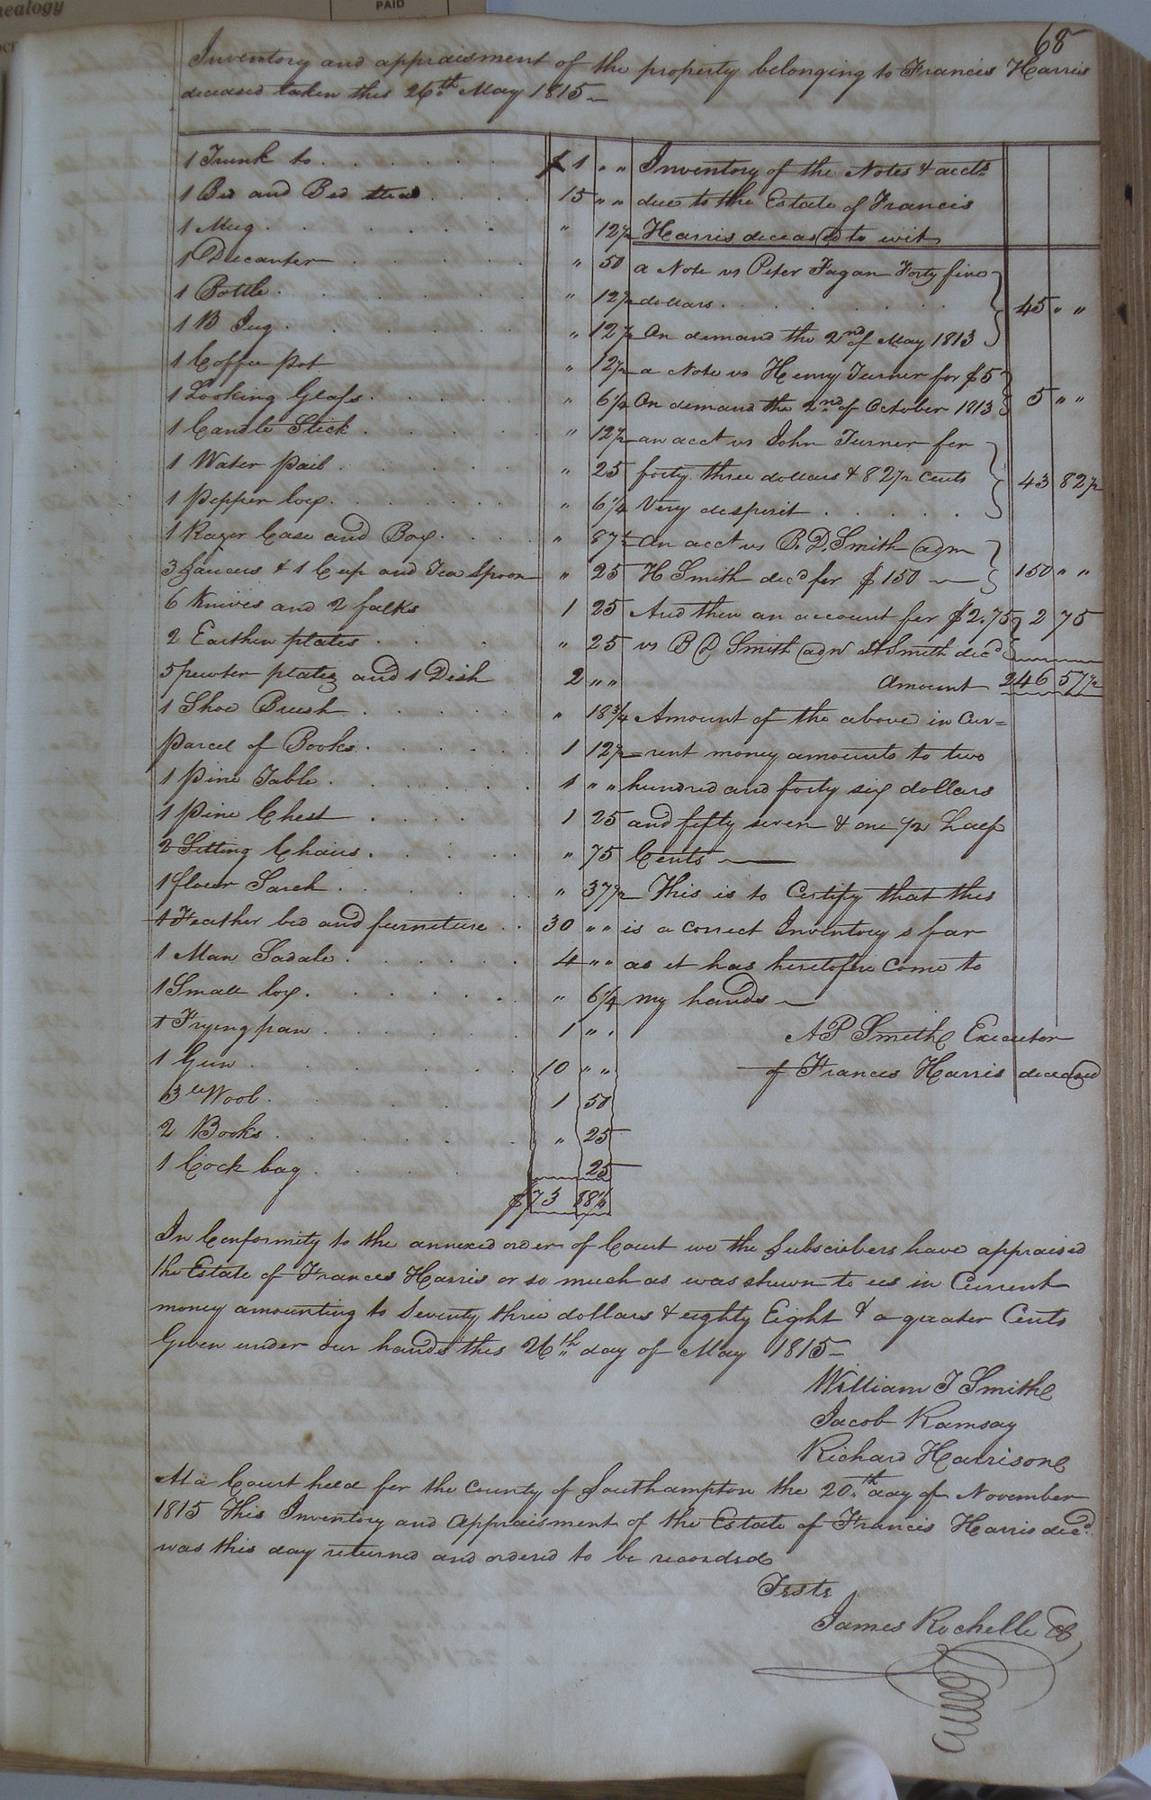 nealogy
PAID
68
Inventory and appraisment of the property belonging to Francis Harris
deceased taken this 26th May 1815
1 Trunk to . . . . . . $ 1 " "
1 Bed and Bed stead . . . . 15 " "
1 Mug . . . . . . " 12½
1 Decanter . . . . . " 50
1 Bottle . . . . . . " 12½
1 B Jug . . . . . . " 12½
1 Coffee pot " 12½
1 Looking Glass . . . . . " 6¼
1 Candle Stick . . . . . " 12½
1 Water pail . . . . . " 25
1 pepper box . . . . . " 6¼
1 Razor Case and Box . . . . " 37½
3 Saucers & 1 Cup and Tea Spoon " 25
6 Knives and 2 falks 1 25
2 Earthen plates . . . . . " 25
5 pewter plates and 1 Dish 2 " "
1 Shoe Brush . . . . . " 18¾
parcel of Books . . . . . 1 12½
1 pine Table . . . . . . 1 " "
1 pine Chest . . . . 1 25
2 Sitting Chairs . . . . . " 75
1 flower Sarch . . . . . " 37½
1 Feather bed and furniture . . 30 " "
1 Man Sadale . . . . . . 4 " "
1 Small box . . . . . . " 6¼
1 Frying pan . . . . . 1 " "
1 Gun . . . . . . 10 " "
3 lb Wool . . . . . 1 50
2 Books . . . . . . " 25
1 Cock bag . . . . . 25
$73 88¼
Inventory of the Notes & accts
due to the Estate of Francis
Harris deceased to wit
a Note vs Peter Fagan Forty five
dollars . . . . . . 45 " "
On demand the 2nd of May 1813
a Note vs Henry Turner for $5
On demand the 2nd of October 1813 5 " "
an acct vs John Turner for
forty three dollars & 82½ cents 43 82½
Very desperit . . . . .
An acct vs B. D. Smith adm
H Smith decd for $150 150 " "
And then an account for $2.75 2 75
vs B D Smith adm H Smith decd
Amount 246 57½
Amount of the above in Cur=
=rent money amounts to two
hundred and forty six dollars
and fifty seven & one ½ half
Cents
This is to Certify that this
is a correct Inventory s far
as it has heretofore Come to
my hands
A P Smith Executor
of Frances Harris deceased
In Conformity to the annexed order of Court we the Subscribers have appraised
the Estate of Frances Harris or so much as was shewn to us in Current
money amounting to Seventy three dollars & eighty Eight & a quater Cents
Given under our hands this 26th day of May 1815
William J Smith
Jacob Ramsay
Richard Harrison
At a Court held for the County of Southampton the 20th day of November
1815 This Inventory and Appraisment of the Estate of Francis Harris decd
was this day returned and ordered to be recorded
Teste
James Rochelle CC